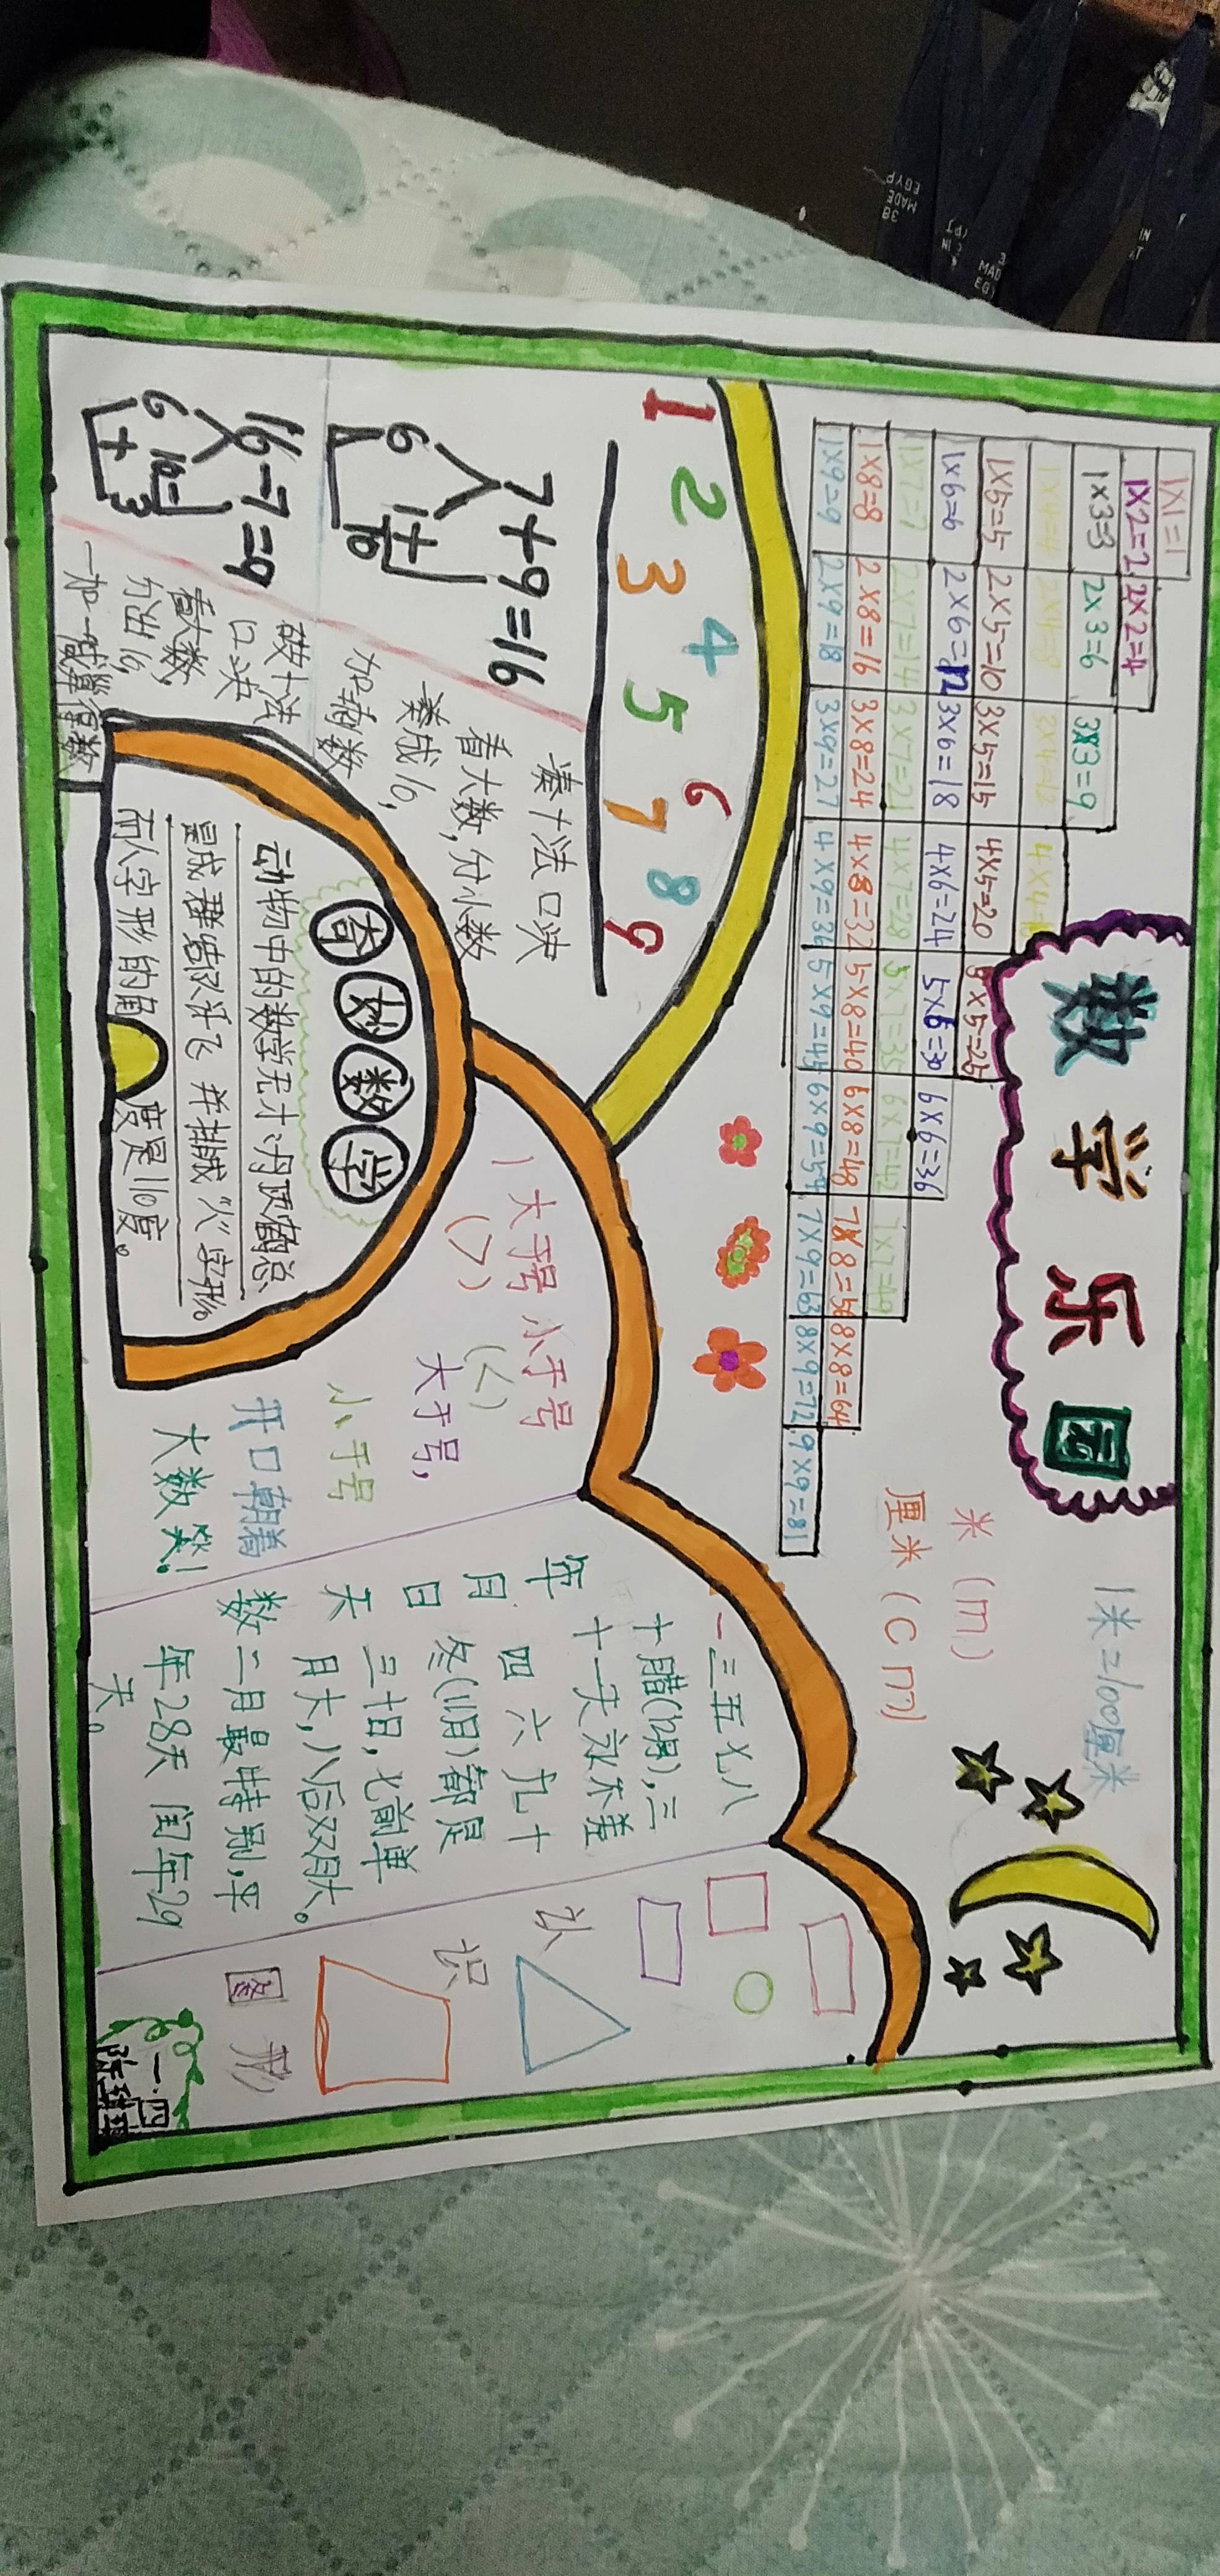 数学乐园
1米=100厘米
米(m)
厘米(cm)
1×1=1
1×2=2 2×2=4
1×3=3 2×3=6 3×3=9
1×4=4 2×4=8 3×4=12
1×5=5 2×5=10 3×5=15 4×5=20 5×5=25
1×6=6 2×6=12 3×6=18 4×6=24 5×6=30 6×6=36
1×7=7 2×7=14 3×7=21 4×7=28 5×7=35 6×7=42 7×7=49
1×8=8 2×8=16 3×8=24 4×8=32 5×8=40 6×8=48 7×8=56 8×8=64
1×9=9 2×9=18 3×9=27 4×9=36 5×9=45 6×9=54 7×9=63 8×9=72 9×9=81
1 2 3 4 5 6 7 8 9
7+9=16
6 1
+
10
凑十法口决
看大数,分小数
凑成10,
加剩数
16-7=9
6 10-7
+ 3
破十法
口决
看大数,
分出10,
一加一减算得数
奇妙数学
动物中的数学"天才":丹顶鹤总
是成群结队乐飞 并排成"人"字形。
而人字形的角
度是110度。
大于号 小于号
(>) (<)
大于号,
小于号
开口朝着
大数笑!
年月日天数
一三五七八
十腊(12月),三
十一天永不差
四六九十
冬(11月)都是
三十日,七前单
月大,八后双月大。
二月最特别,平
年28天 闰年29
天。
认识图形
一.四